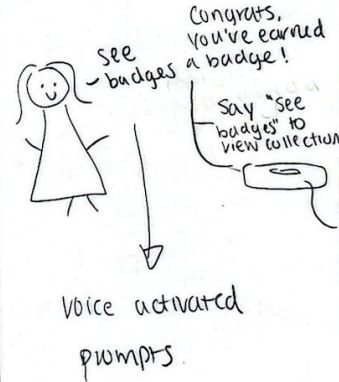 see
badges
Congrats,
you've earned
a badge!
Say "see
badges" to
view collection
voice activated
prompts.